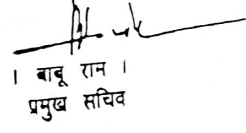 । बाबू राम ।
प्रमुख सचिव